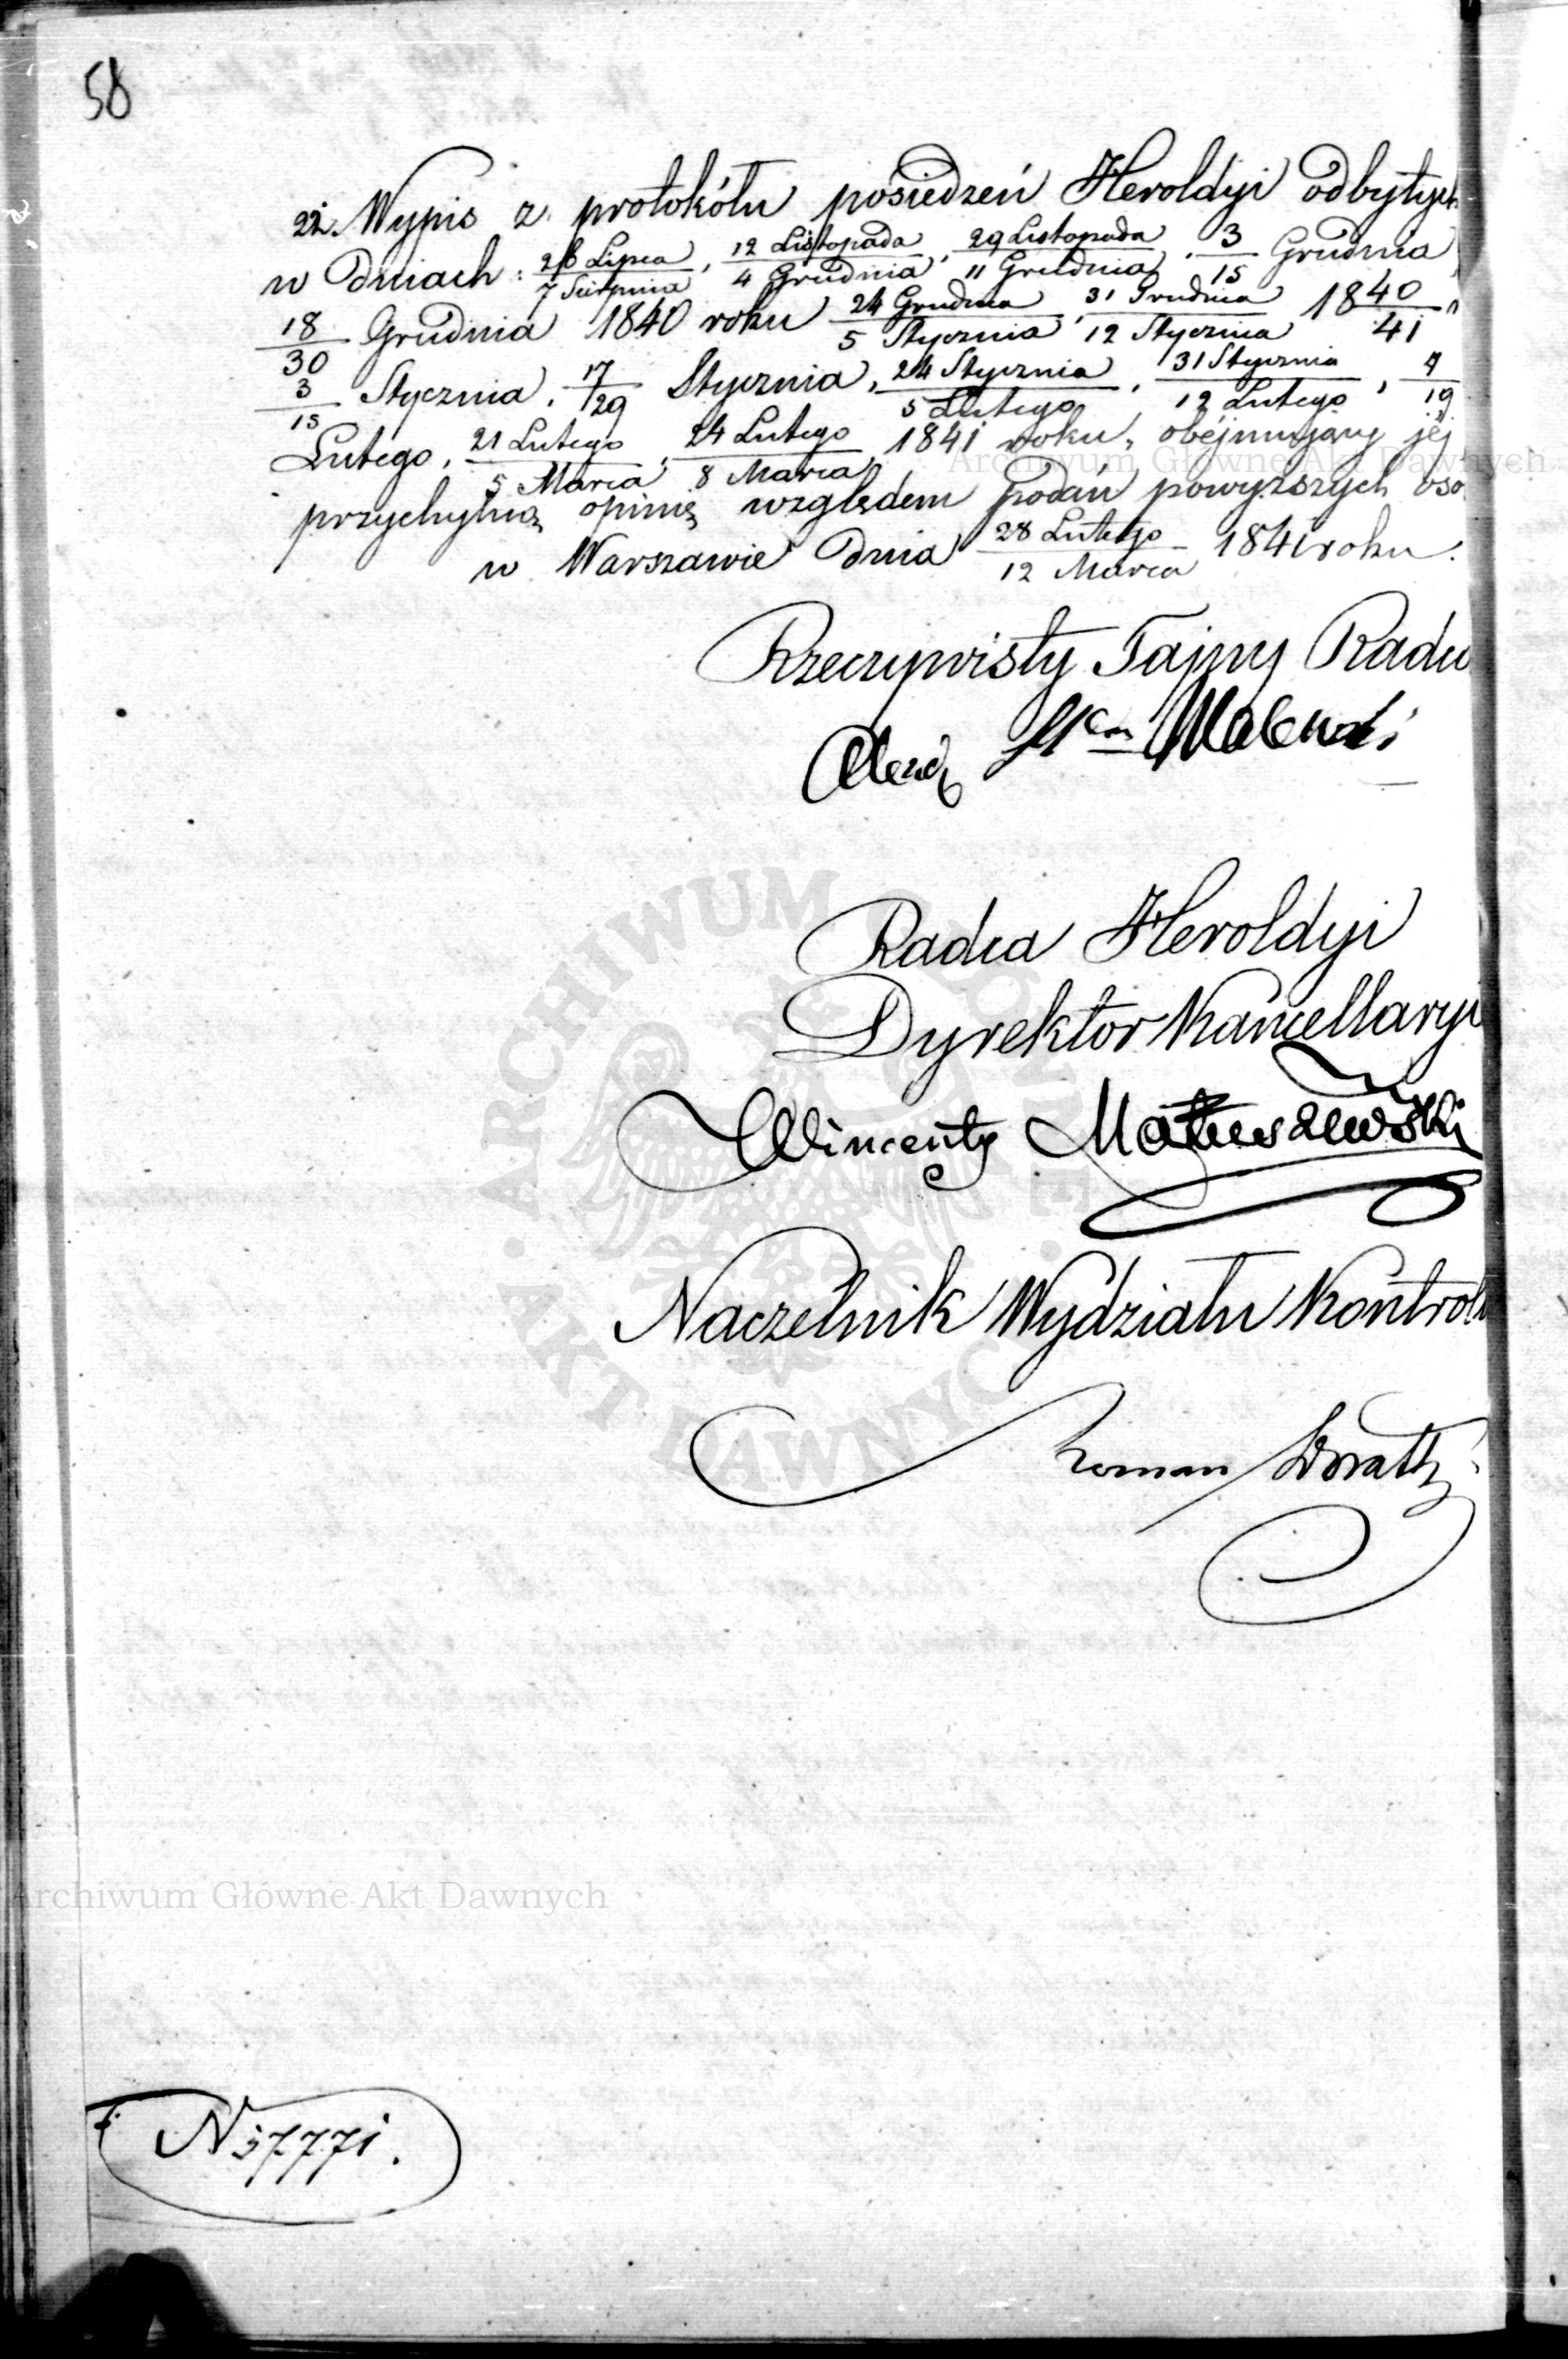 58
22. Wypis z protokółu posiedzeń Heroldyi odbytych
w Dniach: 26 Lipca / 7 Sierpnia, 12 Listopada / 4 Grudnia, 29 Listopada / 11 Grudnia, 3/15 Grudnia,
18/30 Grudnia 1840 roku 24 Grudnia / 5 Stycznia, 31 Grudnia / 12 Stycznia 1840/41
3/15 Stycznia, 17/29 Stycznia, 24 Stycznia / 5 Lutego, 31 Stycznia / 12 Lutego, 7/19
Lutego, 21 Lutego / 5 Marca, 24 Lutego / 8 Marca 1841 roku, obejmujący jéj
przychylną opinię względem podań powyższych oso
w Warszawie Dnia 28 Lutego / 12 Marca 1841 roku.
Rzeczywisty Tajny Radc
Radca Heroldyi
Dyrektor Kancellaryi
Wincenty Matuszewski
Naczelnik Wydziału Kontrol
Roman
N 37771.
Archiwum Główne Akt Dawnych
Archiwum Główne Akt Dawnych
ARCHIWUM GŁÓWNE AKT DAWNYCH